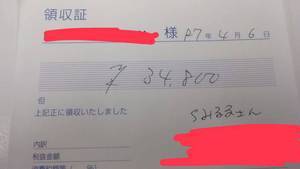 領収証
様 R7年4月6日
¥ 34,800
但
上記正に領収いたしました
内訳
税抜金額
消費税額等( %)